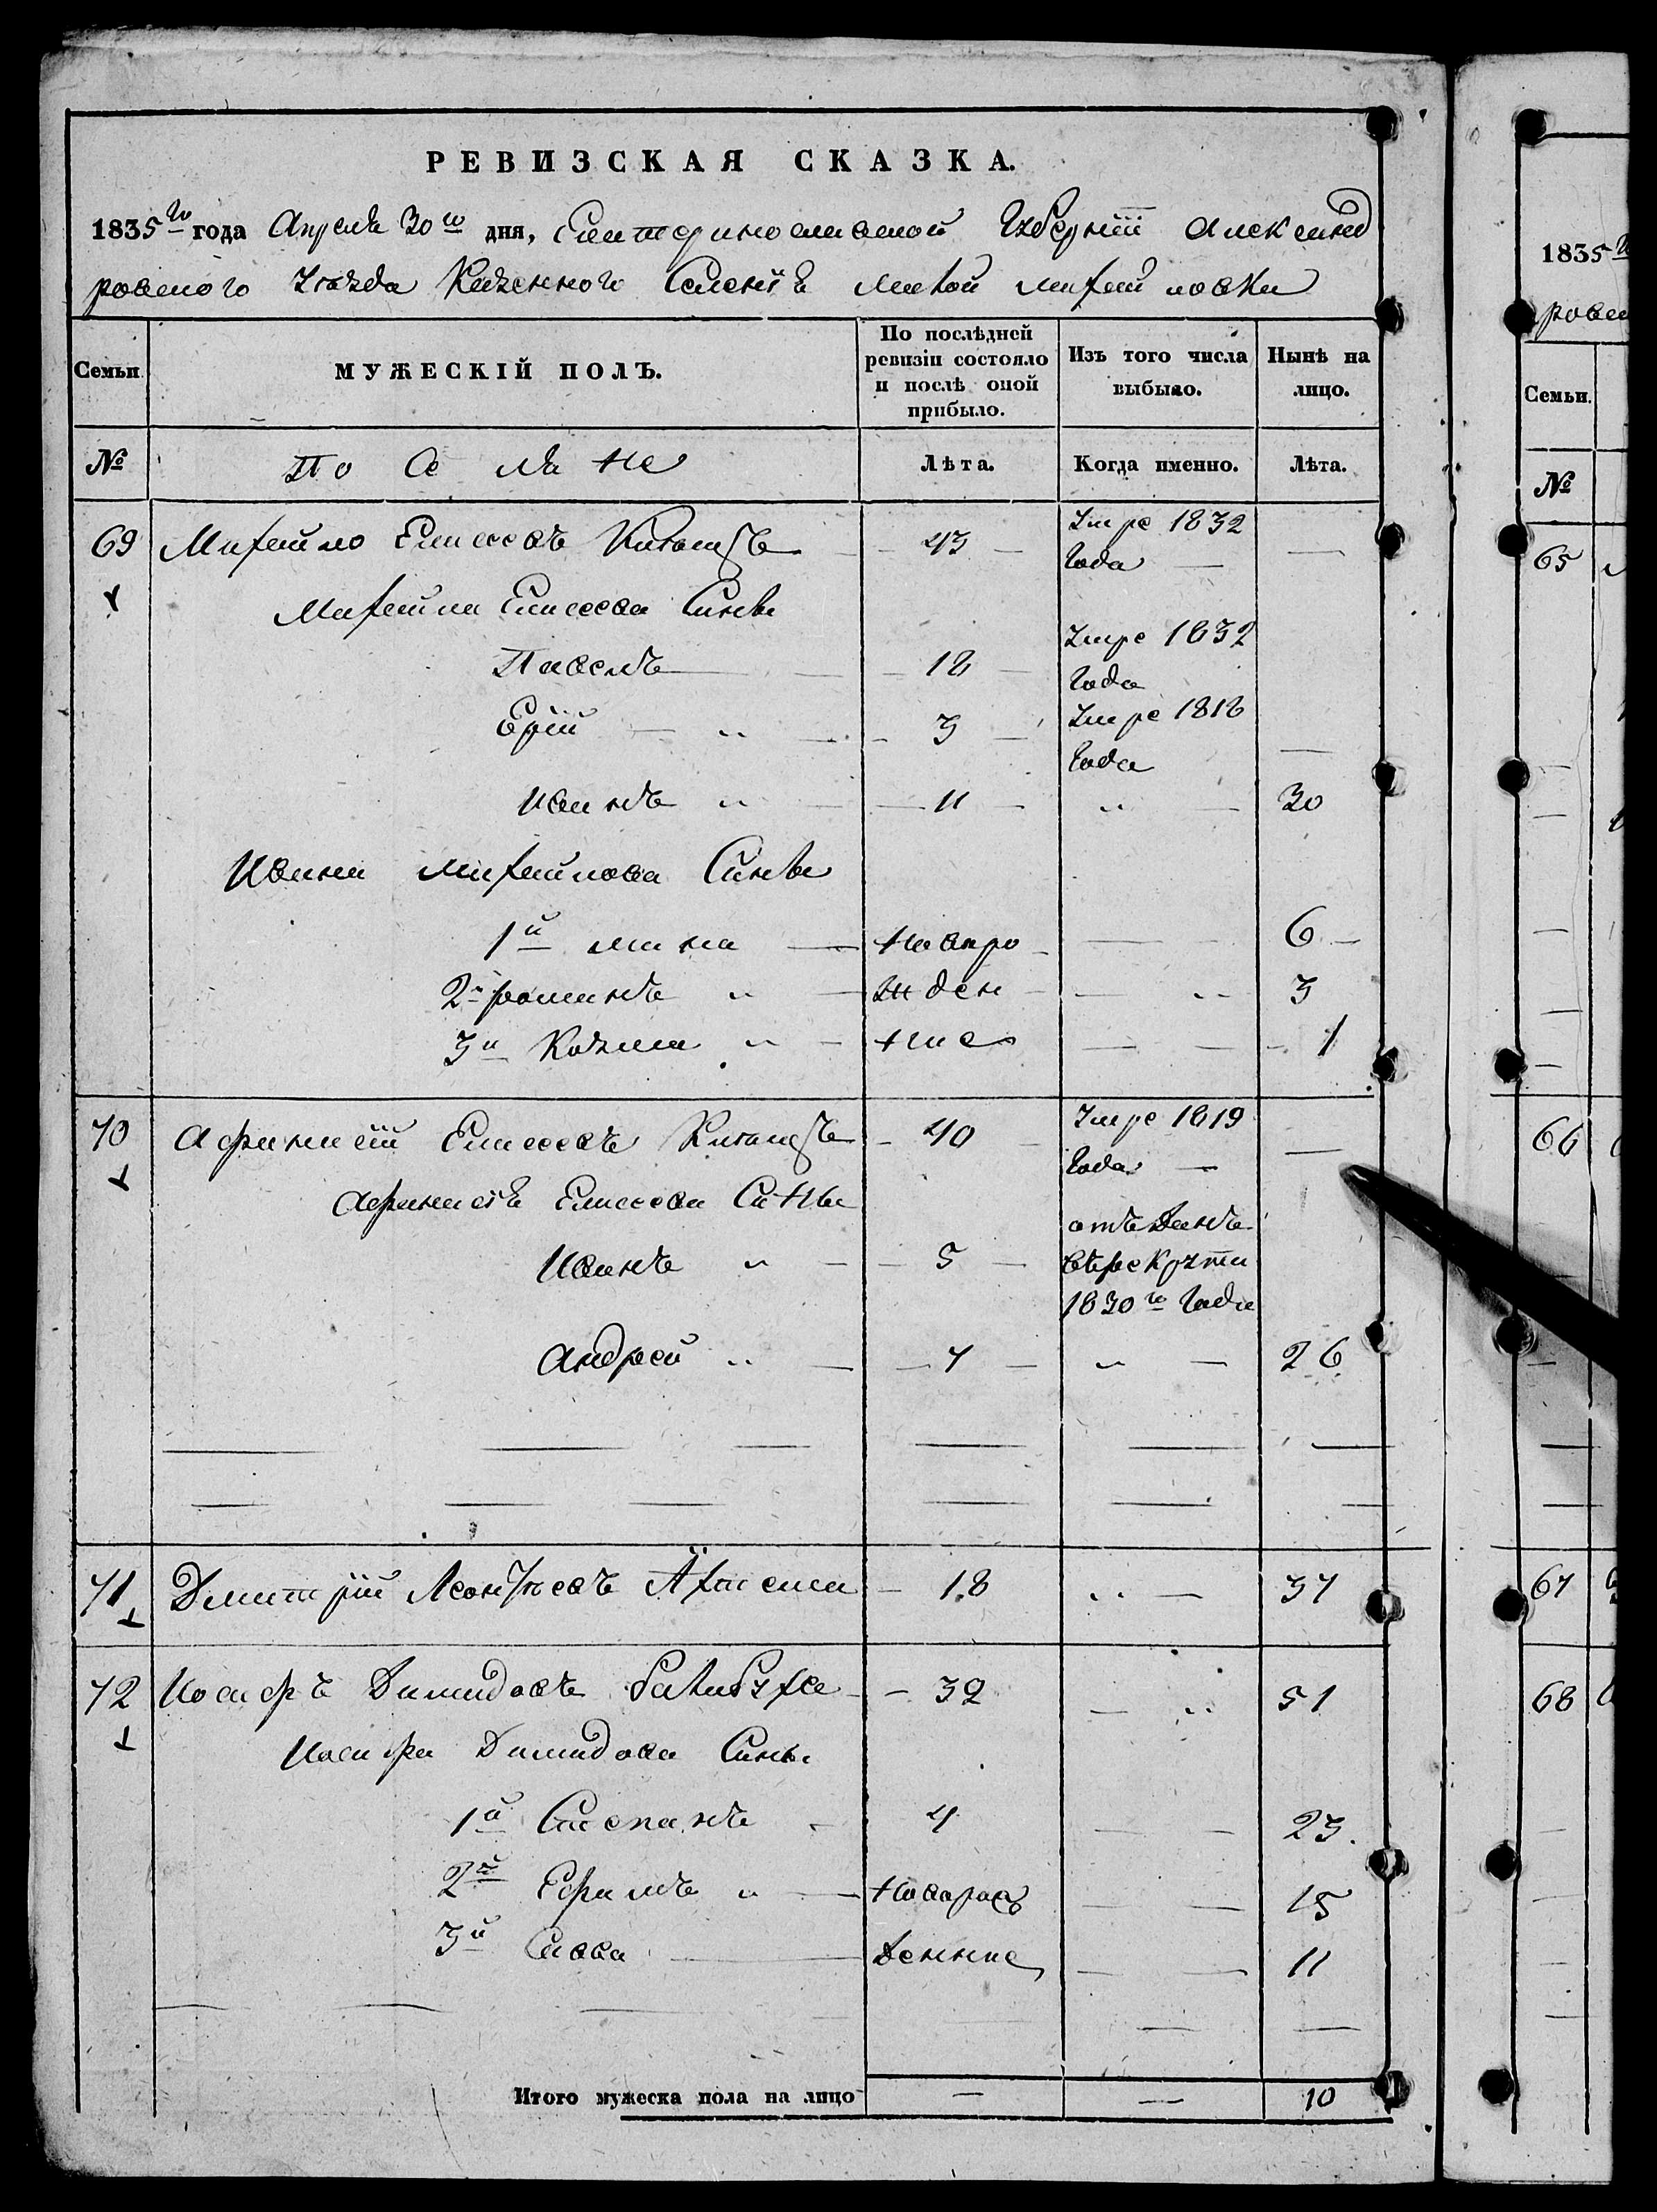 РЕВИЗСКАЯ СКАЗКА.
1835го года Апреля 30го дня, Екатеринославской Губернiи Александ
ровского Уѣзда Казенного Селенiя малой михайловки
Семьи. МУЖЕСКІЙ ПОЛЪ. По послѣдней ревизіи состояло и послѣ оной прибыло. Изъ того числа выбыло. Нынѣ на лицо.
№ По се ля не Лѣта. Когда именно. Лѣта.
69 Михайло Елисеевъ 43 Умре 1832 года —
Михайла Елисеева Сыны
Павелъ 18 Умре 1832 года
3 Умре 1818 года —
Иванъ 11 30
Ивана михайлова Сыны
1й мина — новоро 6
2й романъ жден 3
3й Козма ные 1
70 Афанасiй Елисеевъ 40 Умре 1819 года —
Афанасiя Елисеева Сыны
Иванъ 5 отъданъ врекруты 1830го года
Андрей 7 26
71 Дмитрiй Леонтьевъ 18 37
72 Иосифъ Димидовъ 32 51
Иосифа Димидова Сыны
1й Степанъ 4 23.
2й Ефимъ новорож 15
3й Сава денные 11
Итого мужеска пола на лицо — — 10
1835
ровс
Семьи.
№
65
66
67
68